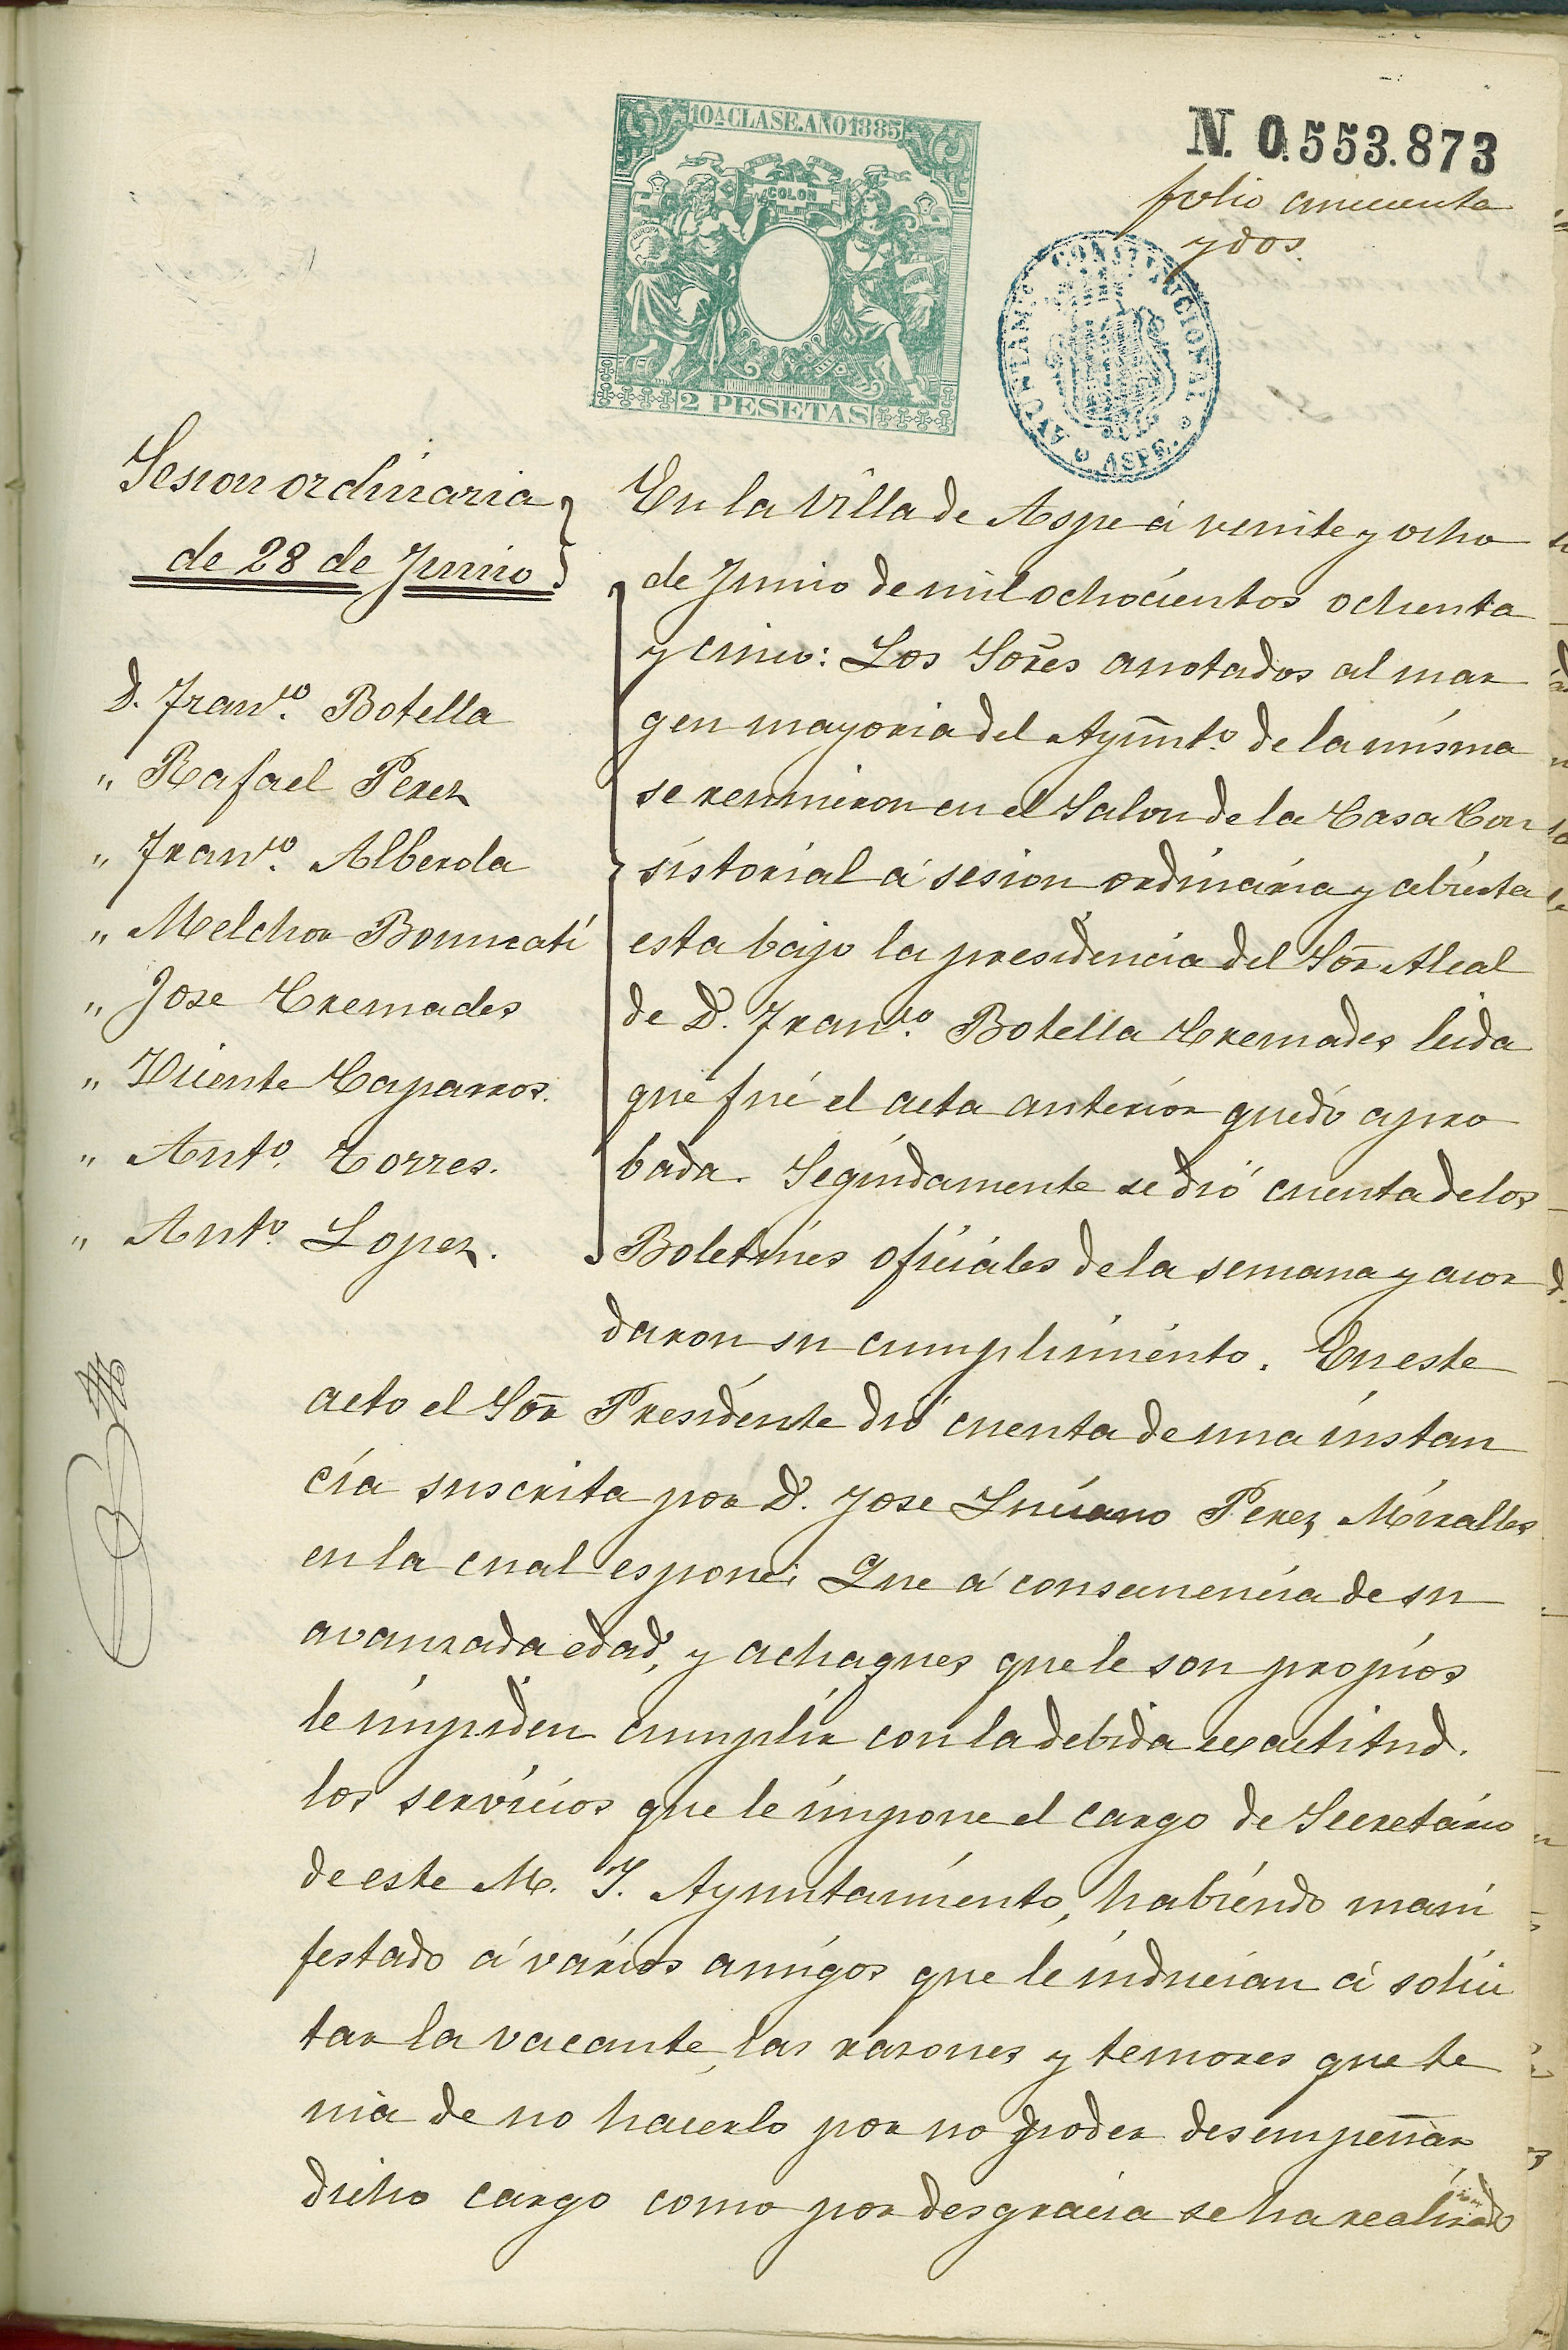 10ª CLASE. AÑO 1885
COLON
EUROPA
2 PESETAS
N. 0.553.873
folio cincuenta
y dos.
AYUNTAMTO CONSTITUCIONAL
ASPE.
Sesion ordinaria
de 28 de Junio
D. Franco. Botella
" Rafael Perez
" Franco. Alberola
" Melchor Bonmatí
" Jose Cremades
" Vicente Caparros.
" Anto. Torres.
" Anto. Lopez.
En la Villa de Aspe á veinte y ocho
de Junio de mil ochocientos ochenta
y cinco: Los Sores anotados al mar
gen mayoria del Ayunto. de la misma
se reunieron en el Salon de la Casa Con
sistorial á sesion ordinaria y abierta
esta bajo la presidencia del Sor Alcal
de D. Franco. Botella Cremades leida
que fué el acta anterior quedó apro
bada. Seguidamente se dió cuenta de los
Boletines oficiales de la semana y acor
daron su cumplimiento. En este
acto el Sor Presidente dió cuenta de una instan
cia suscrita por D. Jose Luciano Perez Miralles
en la cual espone: Que á consecuencia de su
avanzada edad, y achaques que le son propios
le impiden cumplir con la debida exactitud.
los servicios que le impone el cargo de Secretario
de este M. I. Ayuntamiento, habiendo mani
festado á varios amigos que le inducian á solici
tar la vacante, las razones y temores que te
nia de no hacerlo por no poder desempeñar
dicho cargo como por desgracia se ha realizado